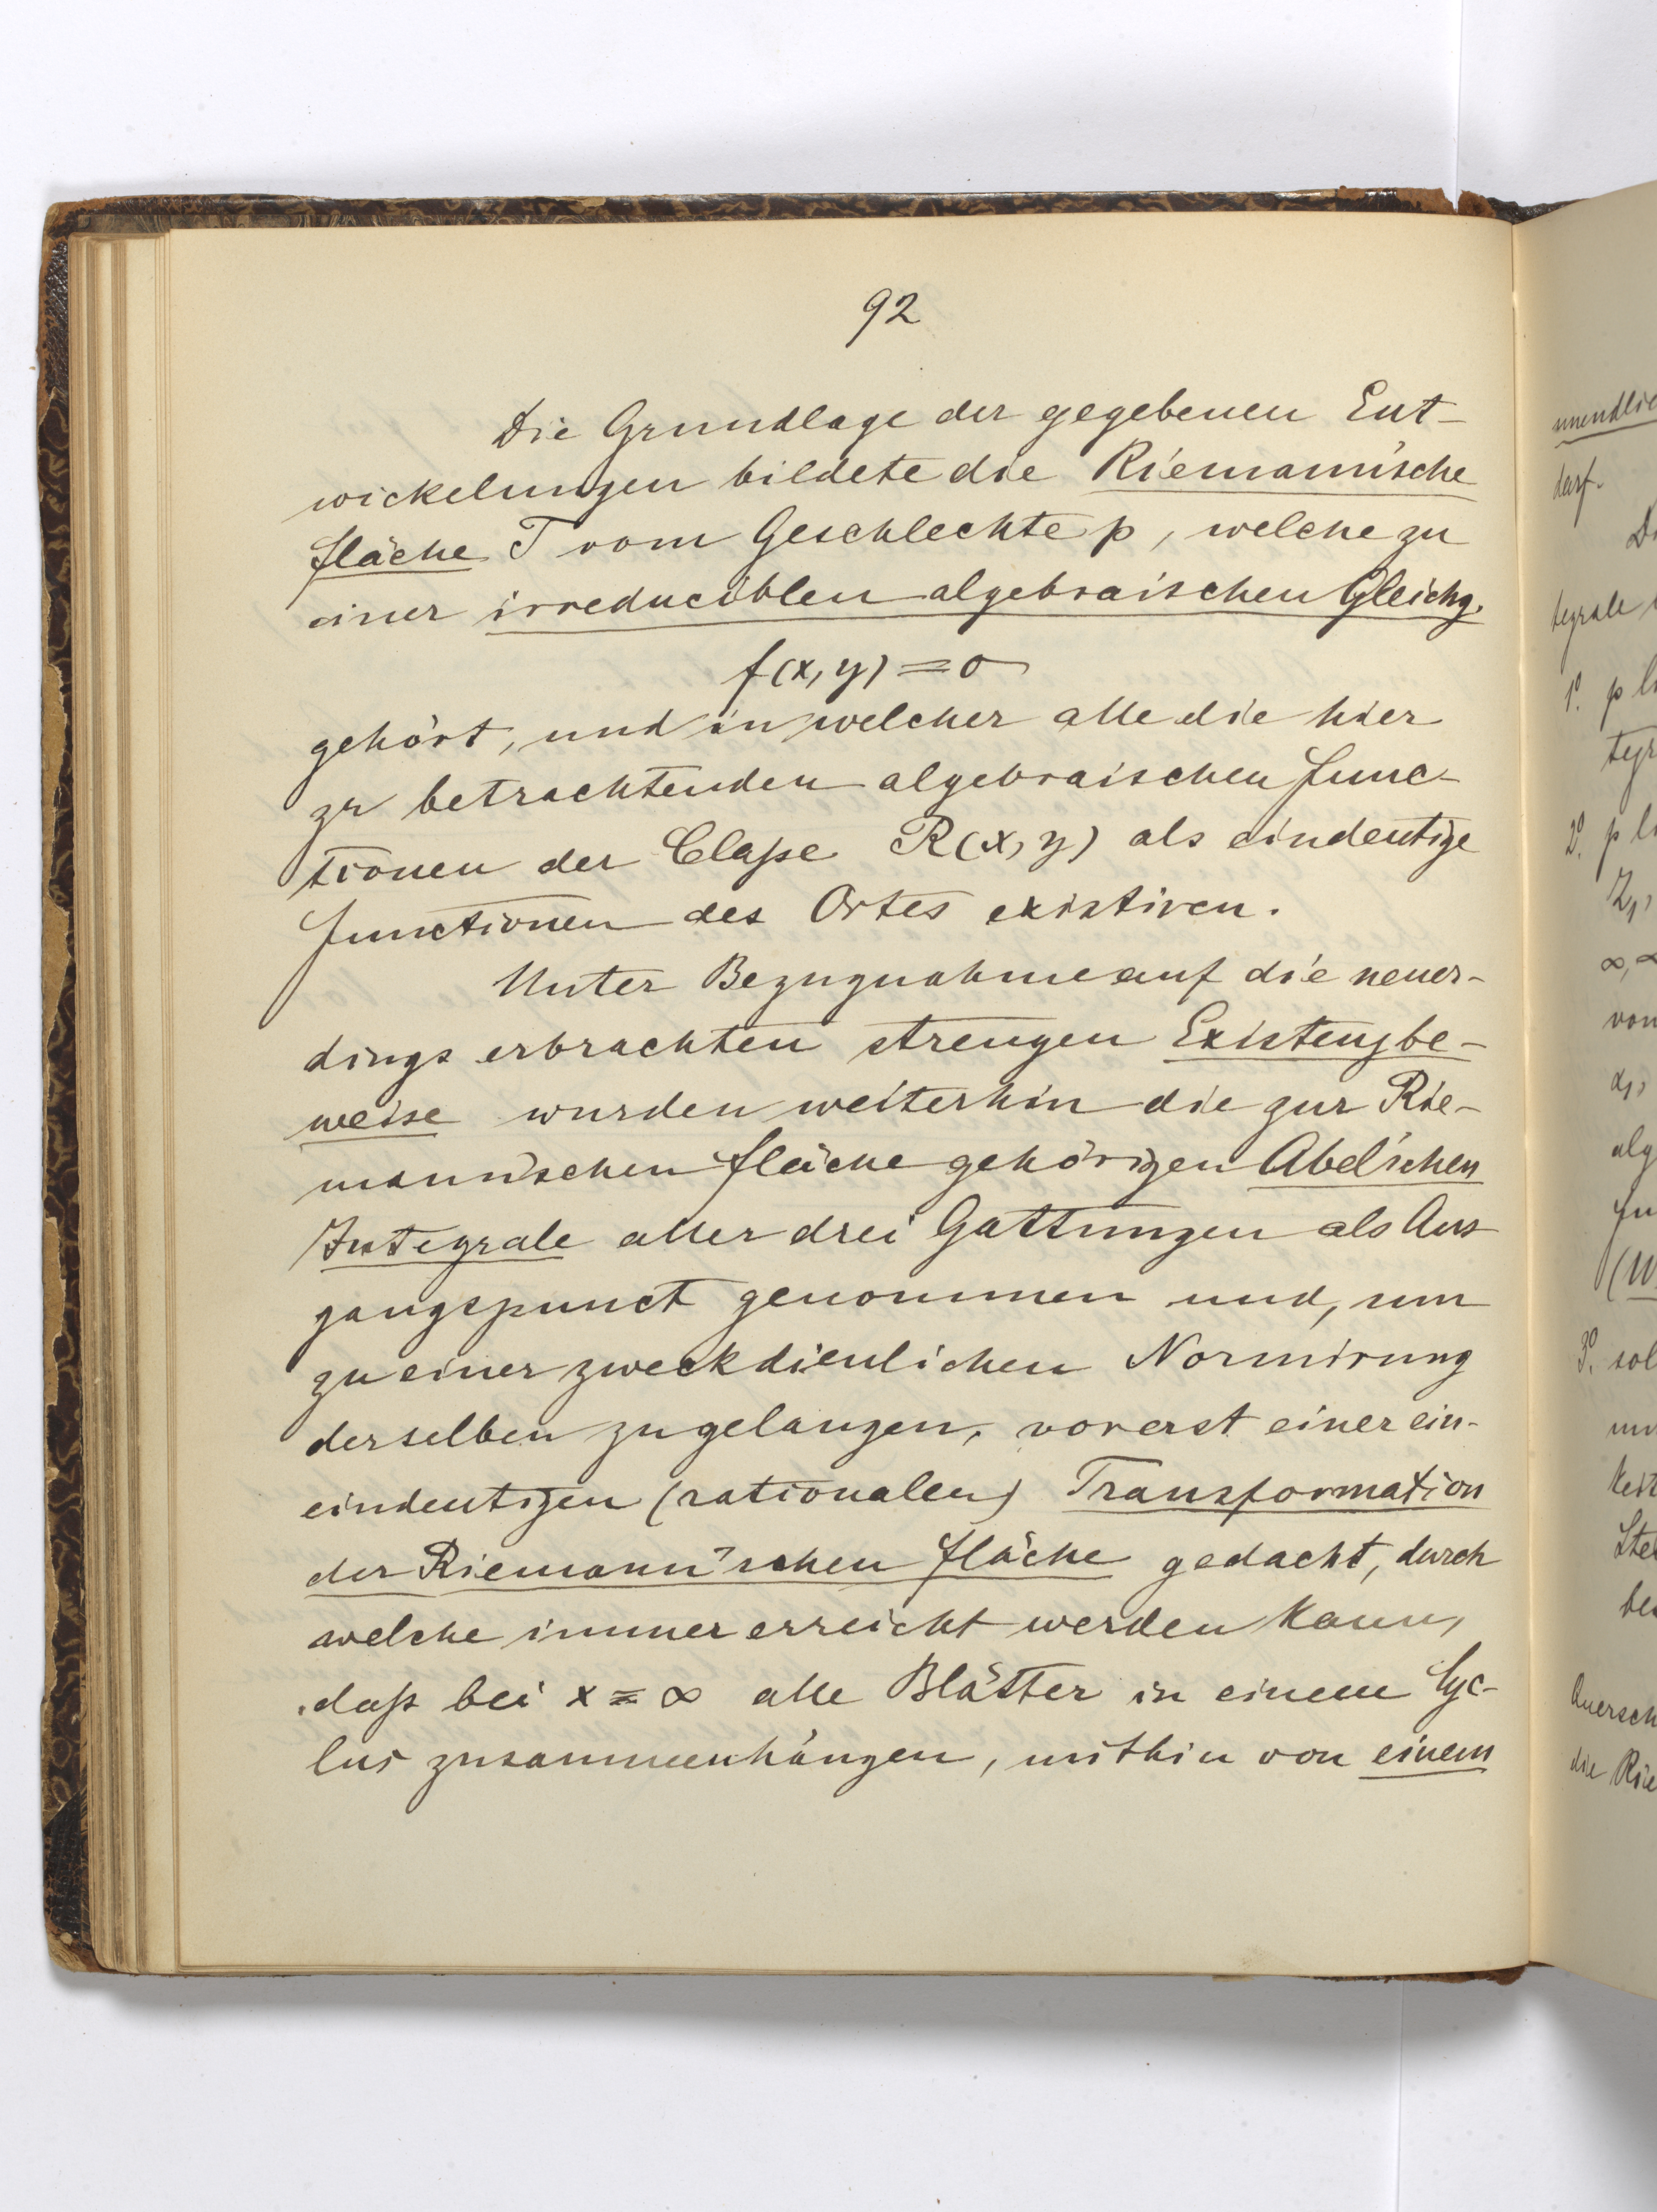 92
Die Grundlage der gegebenen Ent-
wickelungen bildete die Riemann'sche
Fläche T vom Geschlechte p, welche zu
einer irreduciblen algebraischen Gleichg.
f(x, y) = 0
gehört, und in welcher alle die hier
zu betrachtenden algebraischen Func-
tionen der Classe R(x, y) als eindeutige
Functionen des Ortes existiren.
Unter Bezugnahme auf die neuer-
dings erbrachten strengen Existenzbe-
weise wurden weiterhin die zur Rie-
mann'schen Fläche gehörigen Abel'schen
Integrale aller drei Gattungen als Aus
gangspunct genommen und, um
zu einer zweckdienlichen Normirung
derselben zu gelangen, vorerst einer ein-
eindeutigen (rationalen) Transformation
der Riemann'schen Fläche gedacht, durch
welche immer erreicht werden kann,
daß bei x = ∞ alle Blätter in einem Cyc-
lus zusammenhängen, mithin von einem
unendlic
darf.
D
tegrale
1º. p li
tegr
2º. p li
Z₁,
∞,
von
alg
Fu
3º. sol
keit
Ste
be
Quersch
die Rie